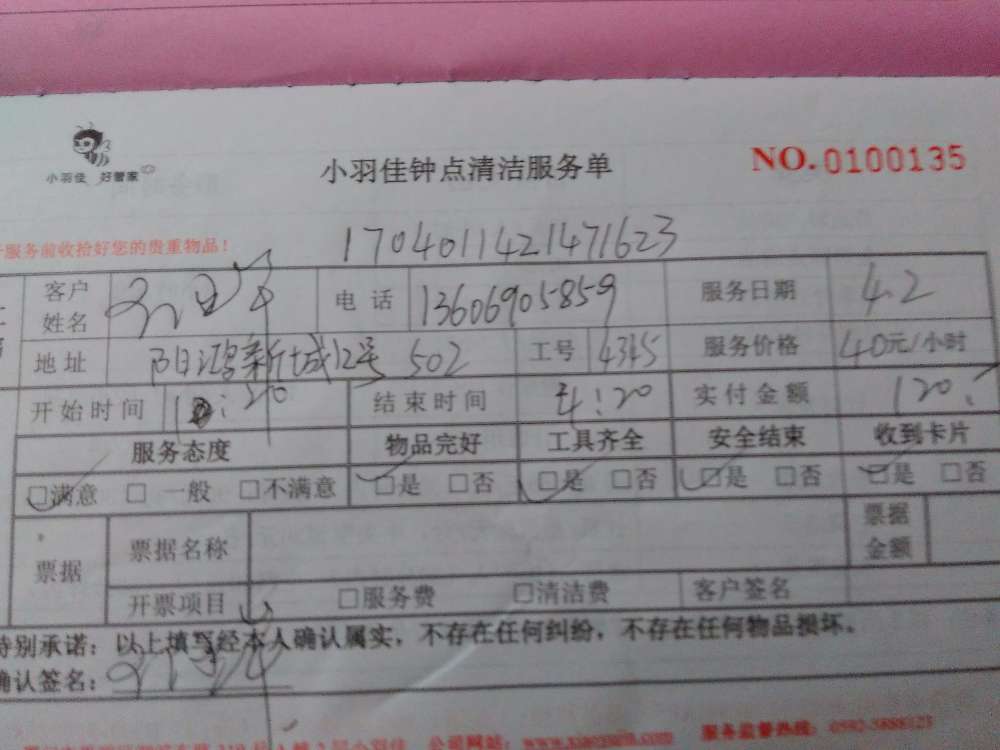 小羽佳 好管家
小羽佳钟点清洁服务单
NO.0100135
服务前收拾好您的贵重物品!
1704011421471623
客户姓名 电话 13606905859 服务日期 4.2
地址 阳鸿新城12号 502 工号 4345 服务价格 40元/小时
开始时间 :20 结束时间 4:20 实付金额 120.
服务态度 物品完好 工具齐全 安全结束 收到卡片
□满意 □一般 □不满意 □是 □否 □是 □否 □是 □否 □是 □否
票据 票据名称 票据金额
开票项目 □服务费 □清洁费 客户签名
特别承诺:以上填写经本人确认属实,不存在任何纠纷,不存在任何物品损坏。
确认签名:
小羽佳 公司网站: 服务监督热线:0592-5888123